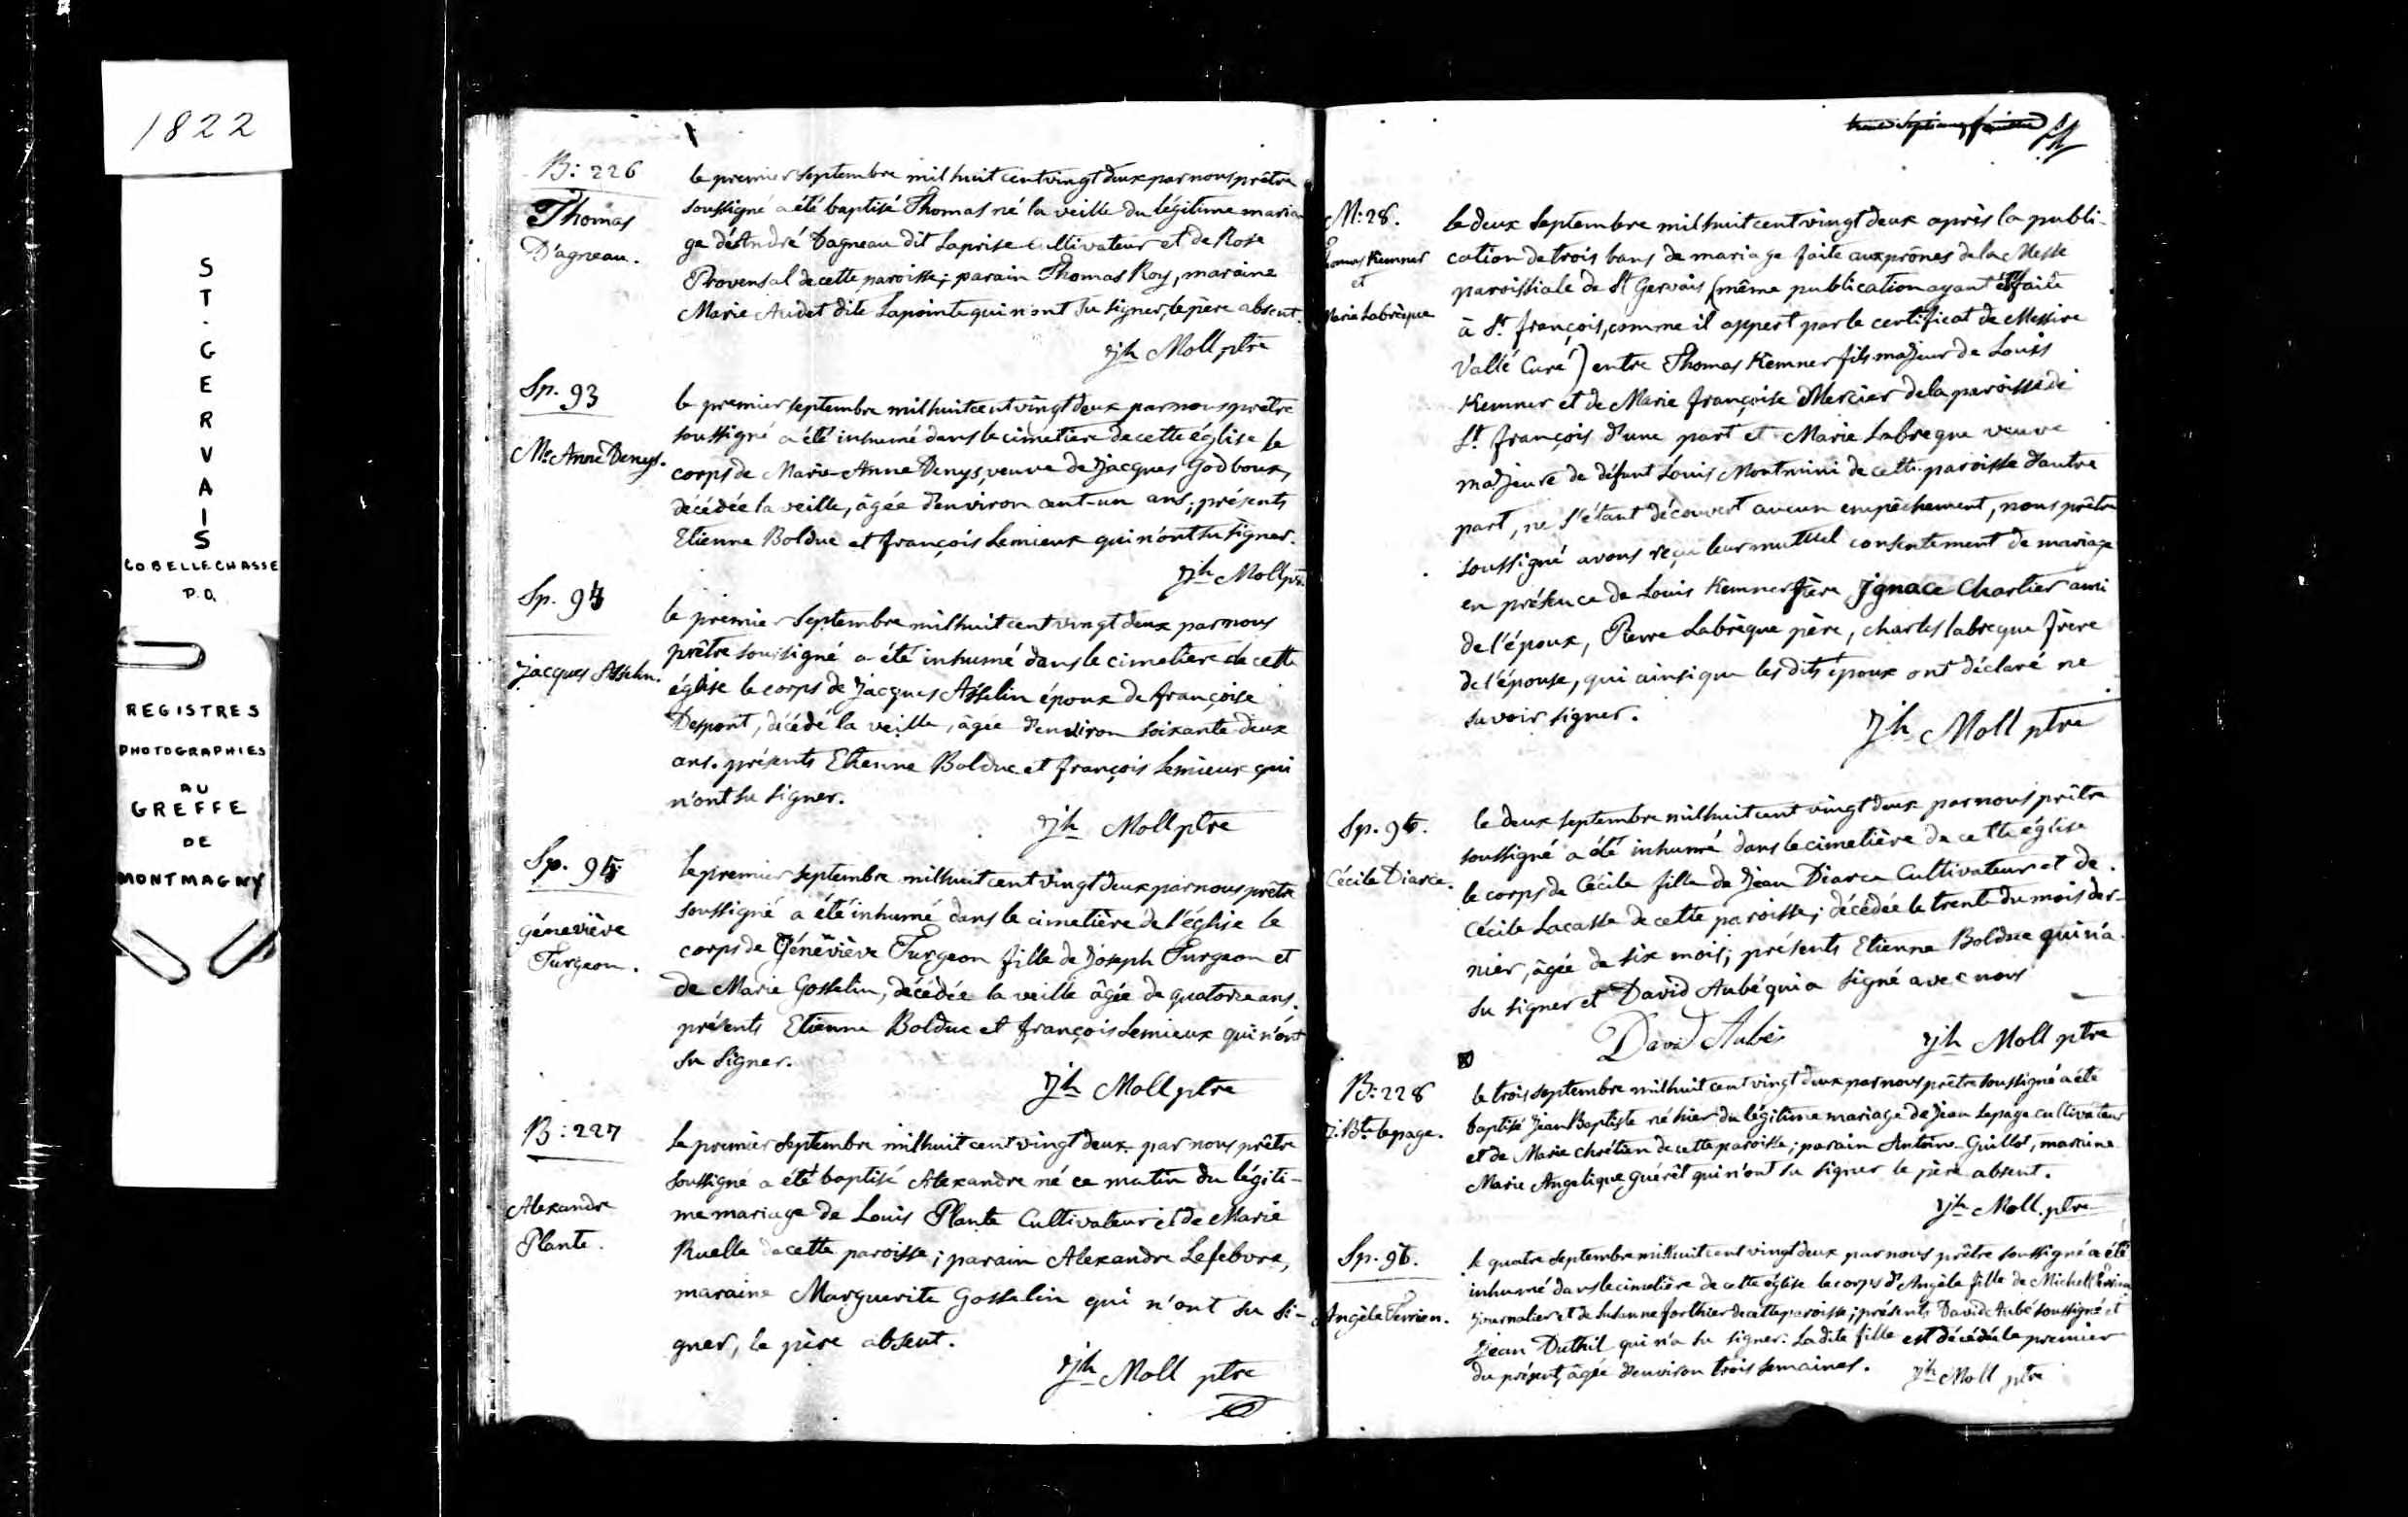 1822
S
T
.
G
E
R
V
A
I
S
CO BELLECHASSE
P.Q.
REGISTRES
PHOTOGRAPHIES
AU
GREFFE
DE
MONTMAGNY
B: 226
Thomas
D'agneau.
le premier septembre mil huit cent vingt deux par nous prêtre
soussigné a été baptisé Thomas né la veille du légitime maria
ge d'André Dagneau dit Laprise cultivateur et de Rose
Provensal de cette paroisse; parain Thomas Roy, maraine
Marie Audet dite Lapointe qui n'ont su signer, le père absent.
Jh Moll ptre
Sp. 93
Me Anne Denys.
le premier septembre mil huit cent vingt deux par nous prêtre
soussigné a été inhumé dans le cimetière de cette église le
corps de Marie-Anne Denys, veuve de Jacques Godboux,
décédée la veille, âgée d'environ cent-un ans; présents
Etienne Bolduc et françois Lemieux qui n'ont su signer.
Jh Moll ptr.
Sp. 94
Jacques Asselin.
le premier septembre mil huit cent vingt deux par nous
prêtre soussigné a été inhumé dans le cimetière de cette
église le corps de Jacques Asselin époux de françoise
Despont, décédé la veille, âgée d'environ soixante-deux
ans. présents Etienne Bolduc et françois Lemieux qui
n'ont su signer.
Jh Moll ptre
Sp. 95
Géneviève
Turgeon.
le premier septembre mil huit cent vingt deux par nous prêtre
soussigné a été inhumé dans le cimetière de l'église le
corps de Géneviève Turgeon fille de Joseph Turgeon et
de Marie Gosselin, décédée la veille âgée de quatorze ans.
présents Etienne Bolduc et françois Lemieux qui n'ont
su signer.
Jh Moll ptre
B: 227
Alexandre
Plante.
le premier septembre mil huit cent vingt deux par nous prêtre
soussigné a été baptisé Alexandre né ce matin du légiti-
me mariage de Louis Plante Cultivateur et de Marie
Ruelle de cette paroisse; parain Alexandre Lefebvre,
maraine Marguerite Gosselin qui n'ont su si-
gner, le père absent.
Jh Moll ptre
M: 28.
Thomas Kemner
et
Marie Labrèque
le deux septembre mil huit cent vingt deux après la publi-
cation de trois bans de mariage faite aux prônes de la Messe
paroissiale de St Gervais (même publication ayant été faite
à St. françois, comme il appert par le certificat de Messire
Vallé Curé) entre Thomas Kemner fils majeur de Louis
Kemner et de Marie françoise Mercier de la paroisse de
St. françois d'une part et Marie Labreque veuve
majeure de défunt Louis Montmini de cette paroisse d'autre
part, ne s'étant découvert aucun empêchement, nous prêtre
soussigné avons reçu leur mutuel consentement de mariage
en présence de Louis Kemner frère Ignace Chartier ami
de l'époux, Pierre Labrèque père, charles labreque frère
de l'épouse, qui ainsi que les dits époux ont déclaré ne
savoir signer.
Jh Moll ptre
Sp. 96.
Cécile Diarce.
le deux septembre mil huit cent vingt deux par nous prêtre
soussigné a été inhumé dans le cimetière de cette église
le corps de Cécile fille de Jean Diarce Cultivateur et de
Cécile Lacasse de cette paroisse; décédée le trente du mois der-
nier, âgée de six mois; présents Etienne Bolduc qui n'a
su signer et David Aubé qui a signé avec nous
David Aubé
Jh Moll ptre
B: 228
J. Bte lepage.
le trois septembre mil huit cent vingt deux par nous prêtre soussigné a été
baptisé Jean Baptiste né hier du légitime mariage de Jean Lepage cultivateur
et de Marie chrétien de cette paroisse; parain Antoine Guillot, maraine
Marie Angelique guérêt qui n'ont su signer le père absent.
Jh Moll. ptre
Sp. 96.
Angèle Perrien.
le quatre septembre mil huit cent vingt deux par nous prêtre soussigné a été
inhumé dans le cimetière de cette église le corps d'Angèle fille de Michel
journalier et de Susanne forthier de cette paroisse; présents David Aubé soussigné et
Jean Duthil qui n'a su signer. La dite fille est décédée le premier
du présent, âgée d'environ trois semaines.
Jh Moll ptre